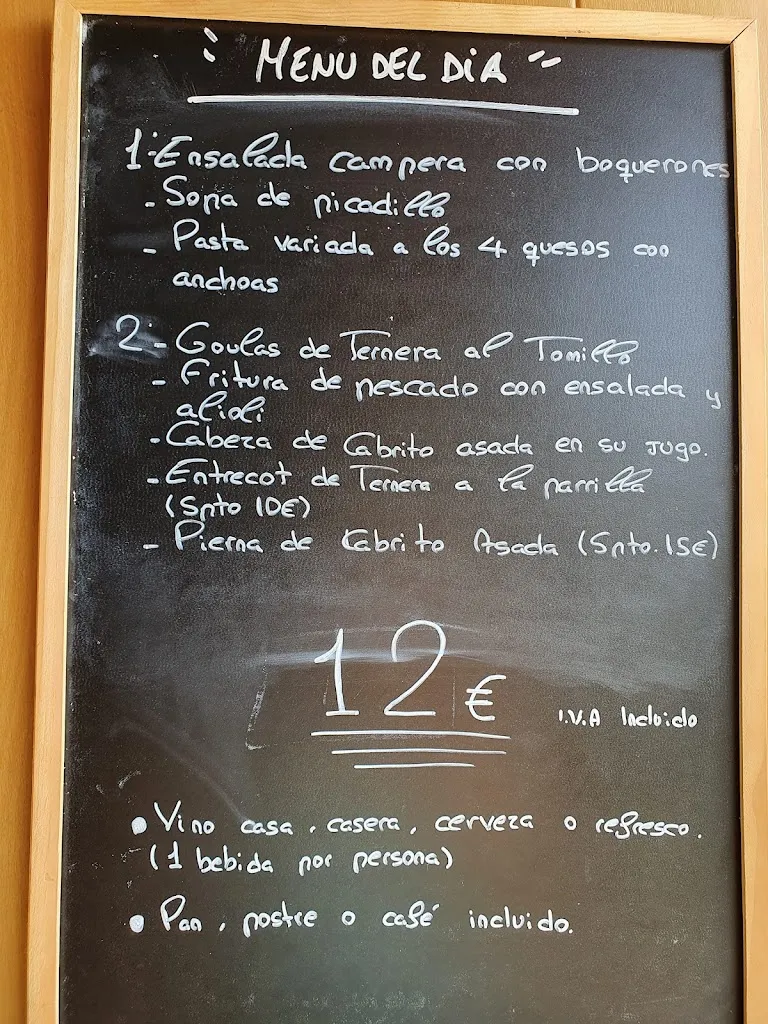 " MENU DEL DiA "
1.- Ensalada campera con boquerones
- Sopa de picadillo
- Pasta variada a los 4 quesos con
anchoas
2.- Goulas de Ternera al Tomillo
- Fritura de pescado con ensalada y
alioli
- Cabeza de Cabrito asada en su jugo.
- Entrecot de Ternera a la parrilla
(Spto 10€)
- Pierna de Cabrito Asada (Spto. 15€)
12€
I.V.A Incluido
• Vino casa, casera, cerveza o refresco.
(1 bebida por persona)
• Pan, postre o café incluido.